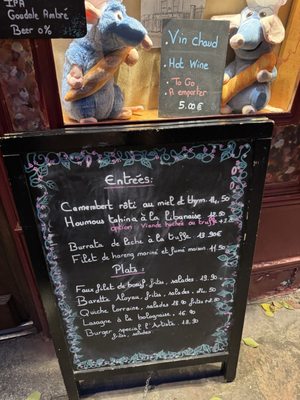 IPA
Goudale Ambré
Beer 0%
Vin Chaud
Hot Wine
To Go
A emporter
5.00€
Entrées:
Camembert rôti au miel et thym. 14,50
Houmous tahina à la libanaise 12.50
option Viande hachée ou truffe
Burrata de Leche à la truffe 13.90€
Filet de hareng mariné et fumé maison.
Plats:
Faux filet de boeuf, frites, salades 19.90
Bavette Aloyau, frites, salades.
Quiche Lorraine, salades 12.90 frites
Lasagne à la bolognaise. 16.90
Burger special l'Artiste. 18.90
frites, salades.